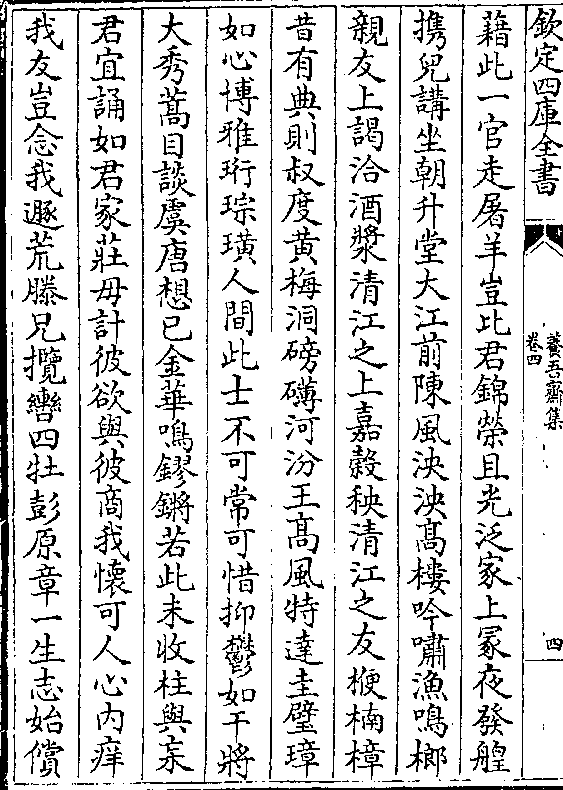 欽定四庫全書
養吾齋集
卷四
四
藉此一官走屠羊豈比君錦榮且光泛家上冡夜發艎
攜兒講坐朝升堂大江前陳風泱泱髙樓吟嘯漁鳴榔
親友上謁洽酒漿清江之上嘉穀秧清江之友楩楠樟
昔有典則叔度黄梅洞磅礴河汾王髙風特達圭璧璋
如心博雅珩琮璜人間此士不可常可惜抑鬱如干將
大秀蒿目談虞唐想已金華鳴鏐鏘若此未收柱與宗
君宜誦如君家莊毋計彼欲與彼商我懷可人心内痒
我友豈念我遯荒滕兄攬轡四牡彭原章一生志始償